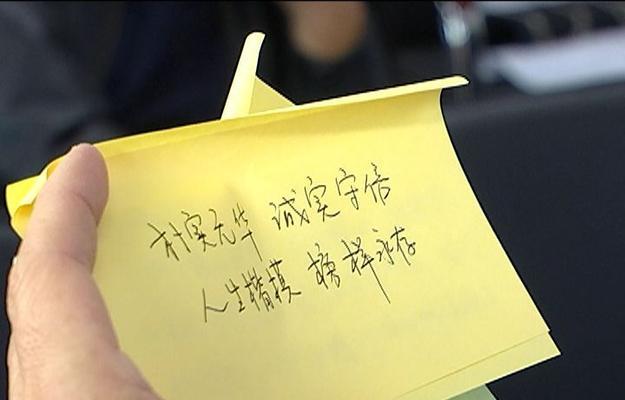 朴实无华 诚实守信
人生楷模 榜样永存